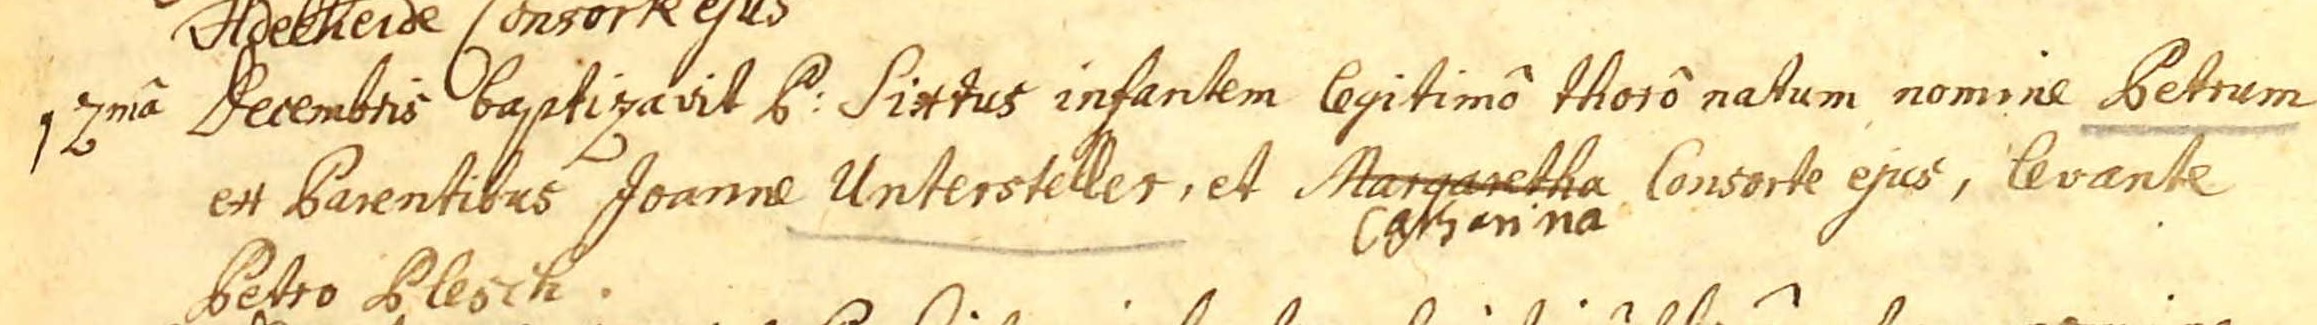 Adelheide Consorte ejus
12mâ Decembris baptizavit P: Sixtus infantem legitimô thorô natum nomine Petrum
ex Parentibus Joanne Untersteller, et Margaretha Consorte ejus, levante
Catharina
Petro Plesch.